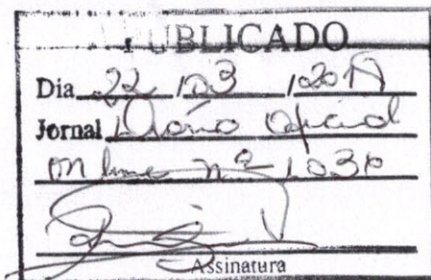 PUBLICADO
Dia 22 / 03 / 2017
Jornal Diário Oficial
on line nº 1030
Assinatura